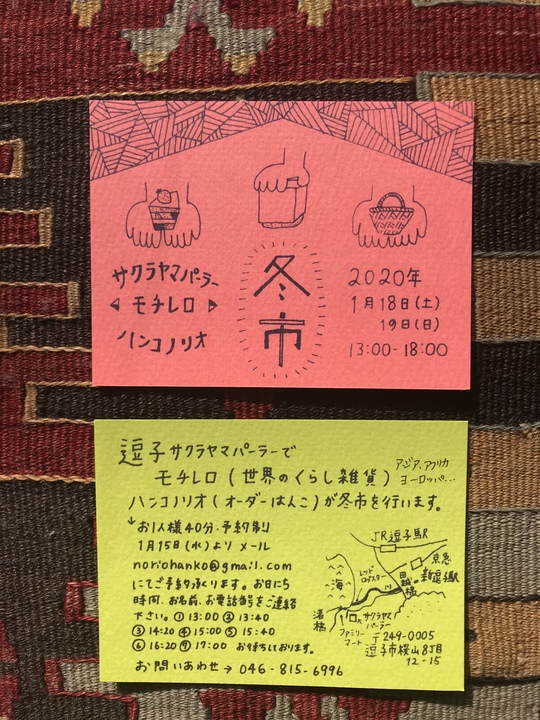 サクラヤマパーラー
モチレロ
ハンコノリオ
冬市
2020年
1月18日(土)
19日(日)
13:00-18:00
逗子サクラヤマパーラーで
モチレロ(世界のくらし雑貨)
アジア、アフリカ
ヨーロッパ…
ハンコノリオ(オーダーはんこ)が冬市を行います。
↓お1人様40分・予約制
1月15日(水)より メール
noriohanko@gmail.com
にてご予約承ります。お日にち
時間、お名前、お電話番号をご連絡
下さい。①13:00 ②13:40
③14:20 ④15:00 ⑤15:40
⑥16:20 ⑦17:00 お待ちしております。
お問いあわせ→046-815-6996
JR逗子駅
京急
新逗子駅
レッドロブスター
田越橋
川
海
渚橋
サクラヤマ
パーラー
ファミリー
マート
〒249-0005
逗子市桜山8丁目
12-15